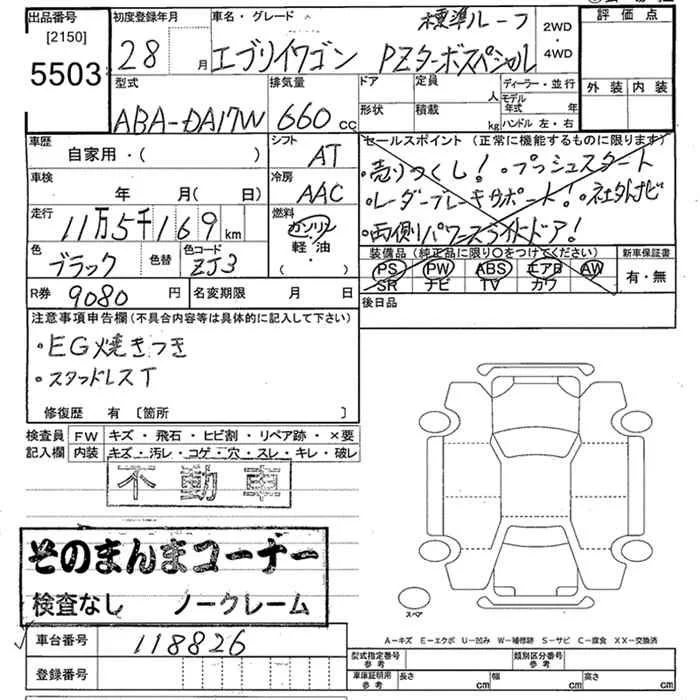 出品番号
[2150]
5503
初度登録年月
28 月
車名・グレード
エブリイワゴン PZターボスペシャル
標準ルーフ
2WD
・
4WD
評価点
外装 内装
型式
ABA-DA17W
排気量
660 cc
ドア
形状
定員
人
積載
kg
ディーラー・並行
モデル年式 年
ハンドル 左・右
車歴
自家用・( )
シフト
AT
車検
年 月( 日)
冷房
AAC
走行
11万5千169 km
燃料
ガソリン
軽・油
・
( )
色
ブラック
色替
色コード
ZJ3
R券
9080 円
名変期限 月 日
セールスポイント (正常に機能するものに限ります)
・売りつくし!・プッシュスタート
・レーダーブレーキサポート!・社外ナビ
・両側パワースライドドア!
装備品(純正品に限り〇をつけてください)
PS PW ABS エアB AW
SR ナビ TV カワ
新車保証書
有・無
後日品
注意事項申告欄(不具合内容等は具体的に記入して下さい)
・EG焼きつき
・スタッドレスT
修復歴 有 [箇所 ]
検査員
記入欄
FW キズ・飛石・ヒビ割・リペア跡・×要
内装 キズ・汚レ・コゲ・穴・スレ・キレ・破レ
不動車
そのまんまコーナー
検査なし ノークレーム
スペア
A-キズ E-エクボ U-凹み W-補修跡 S-サビ C-腐食 XX-交換済
車台番号
118826
登録番号
型式指定番号
参考
類別区分番号
参考
車庫証明用
参考
長さ cm 幅 cm 高さ cm